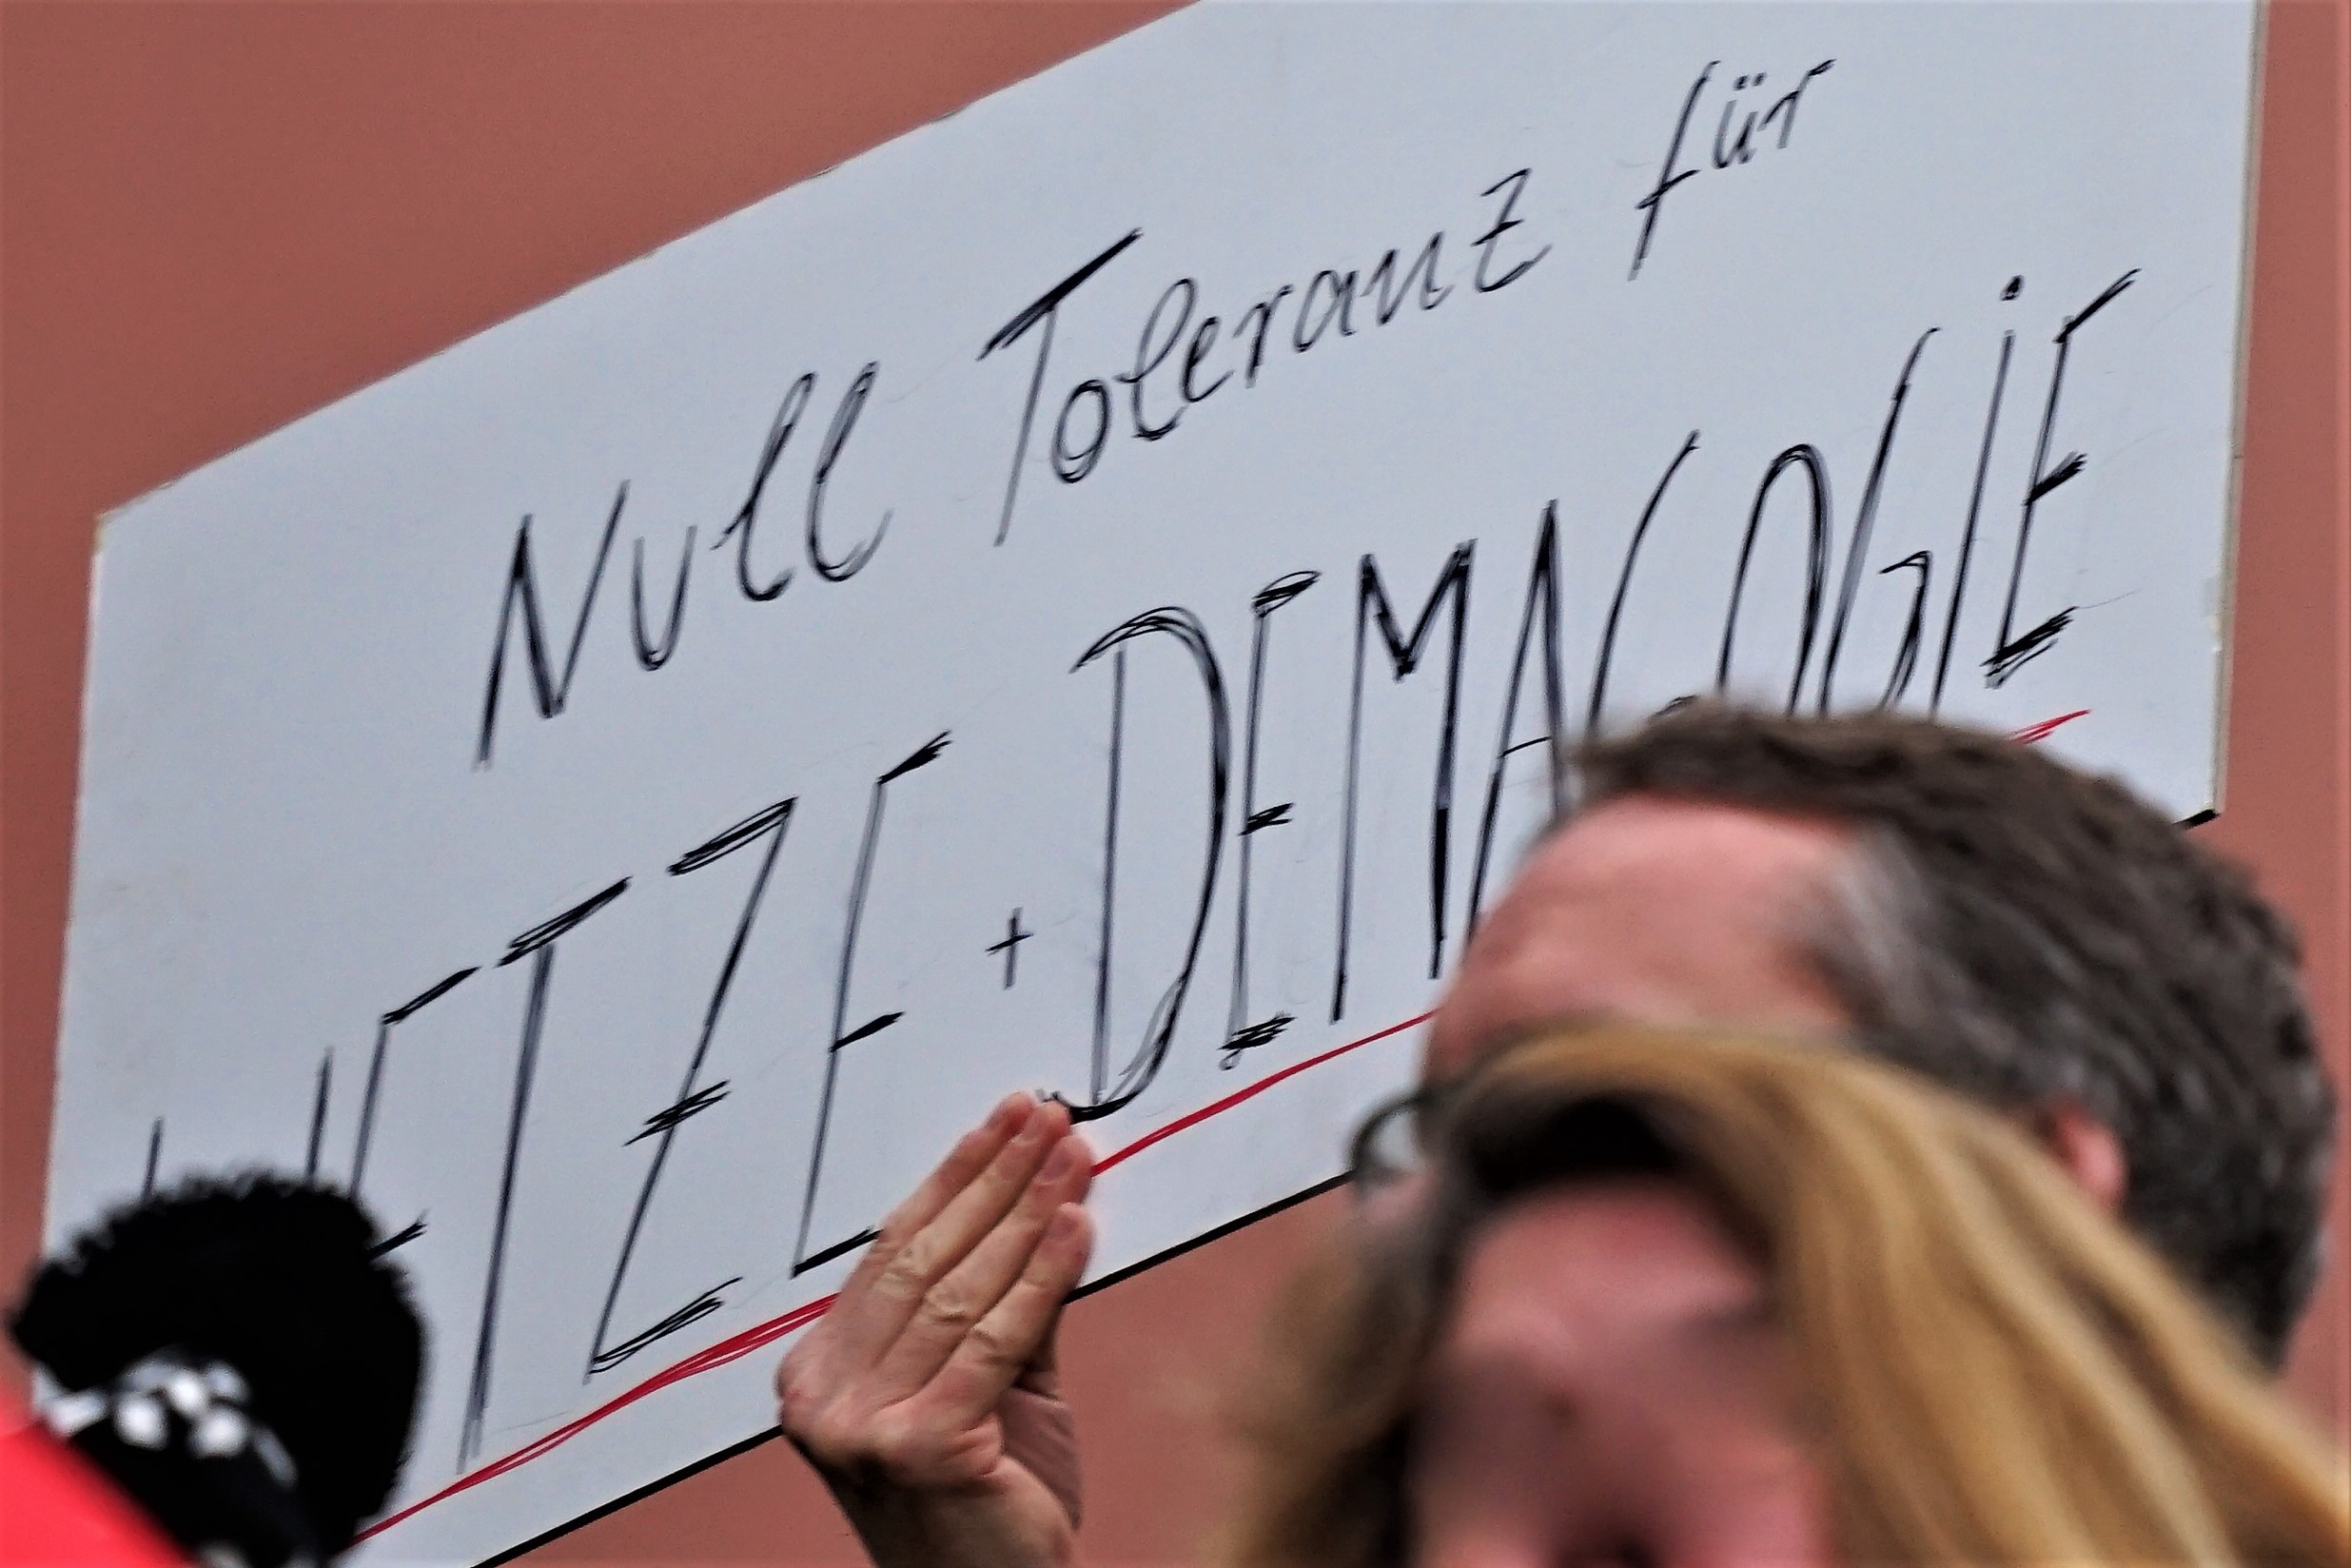 Null Toleranz für
HETZE + DEMAGOGIE